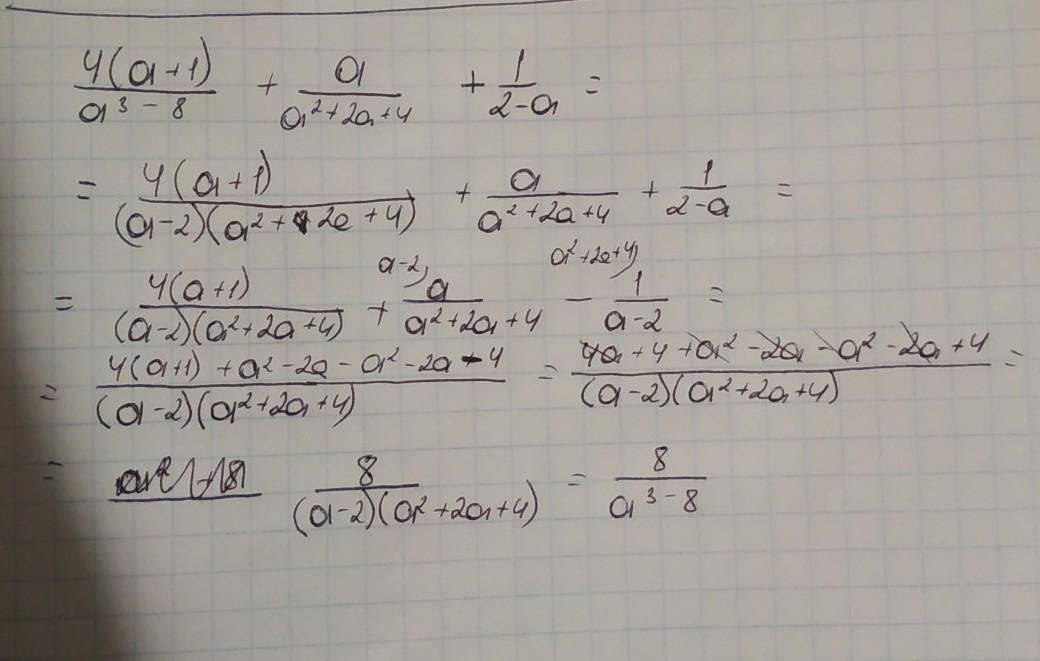 4(a+1)/(a³-8) + a/(a²+2a+4) + 1/(2-a) =
= 4(a+1)/((a-2)(a²+2a+4)) + a/(a²+2a+4) + 1/(2-a) =
a-2) a²+2a+4)
= 4(a+1)/((a-2)(a²+2a+4)) + a/(a²+2a+4) - 1/(a-2) =
= (4(a+1)+a²-2a-a²-2a-4)/((a-2)(a²+2a+4)) = (4a+4+a²-2a-a²-2a+4)/((a-2)(a²+2a+4)) =
= 8/((a-2)(a²+2a+4)) = 8/(a³-8)